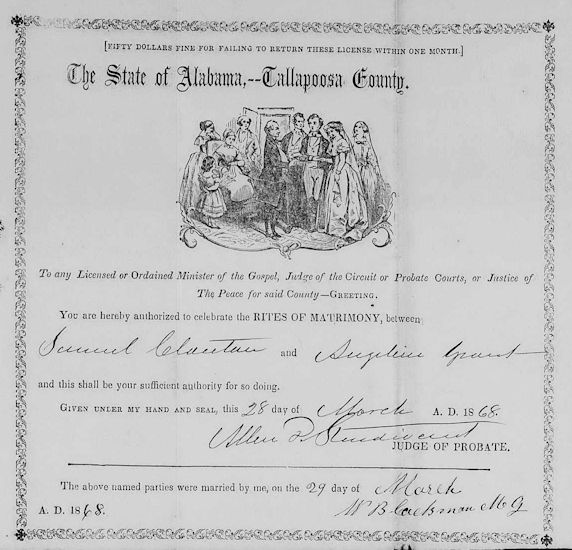 [FIFTY DOLLARS FINE FOR FAILING TO RETURN THESE LICENSE WITHIN ONE MONTH.]
The State of Alabama,--Tallapoosa County.
To any Licensed or Ordained Minister of the Gospel, Judge of the Circuit or Probate Courts, or Justice of
The Peace for said County—GREETING.
You are hereby authorized to celebrate the RITES OF MATRIMONY, between
Samuel and Angeline Grant
and this shall be your sufficient authority for so doing.
GIVEN UNDER MY HAND AND SEAL, this 28 day of March A. D. 1868.
Allen D. Sturdivant
JUDGE OF PROBATE.
The above named parties were married by me, on the 29 day of March
A. D. 1868. W B M G